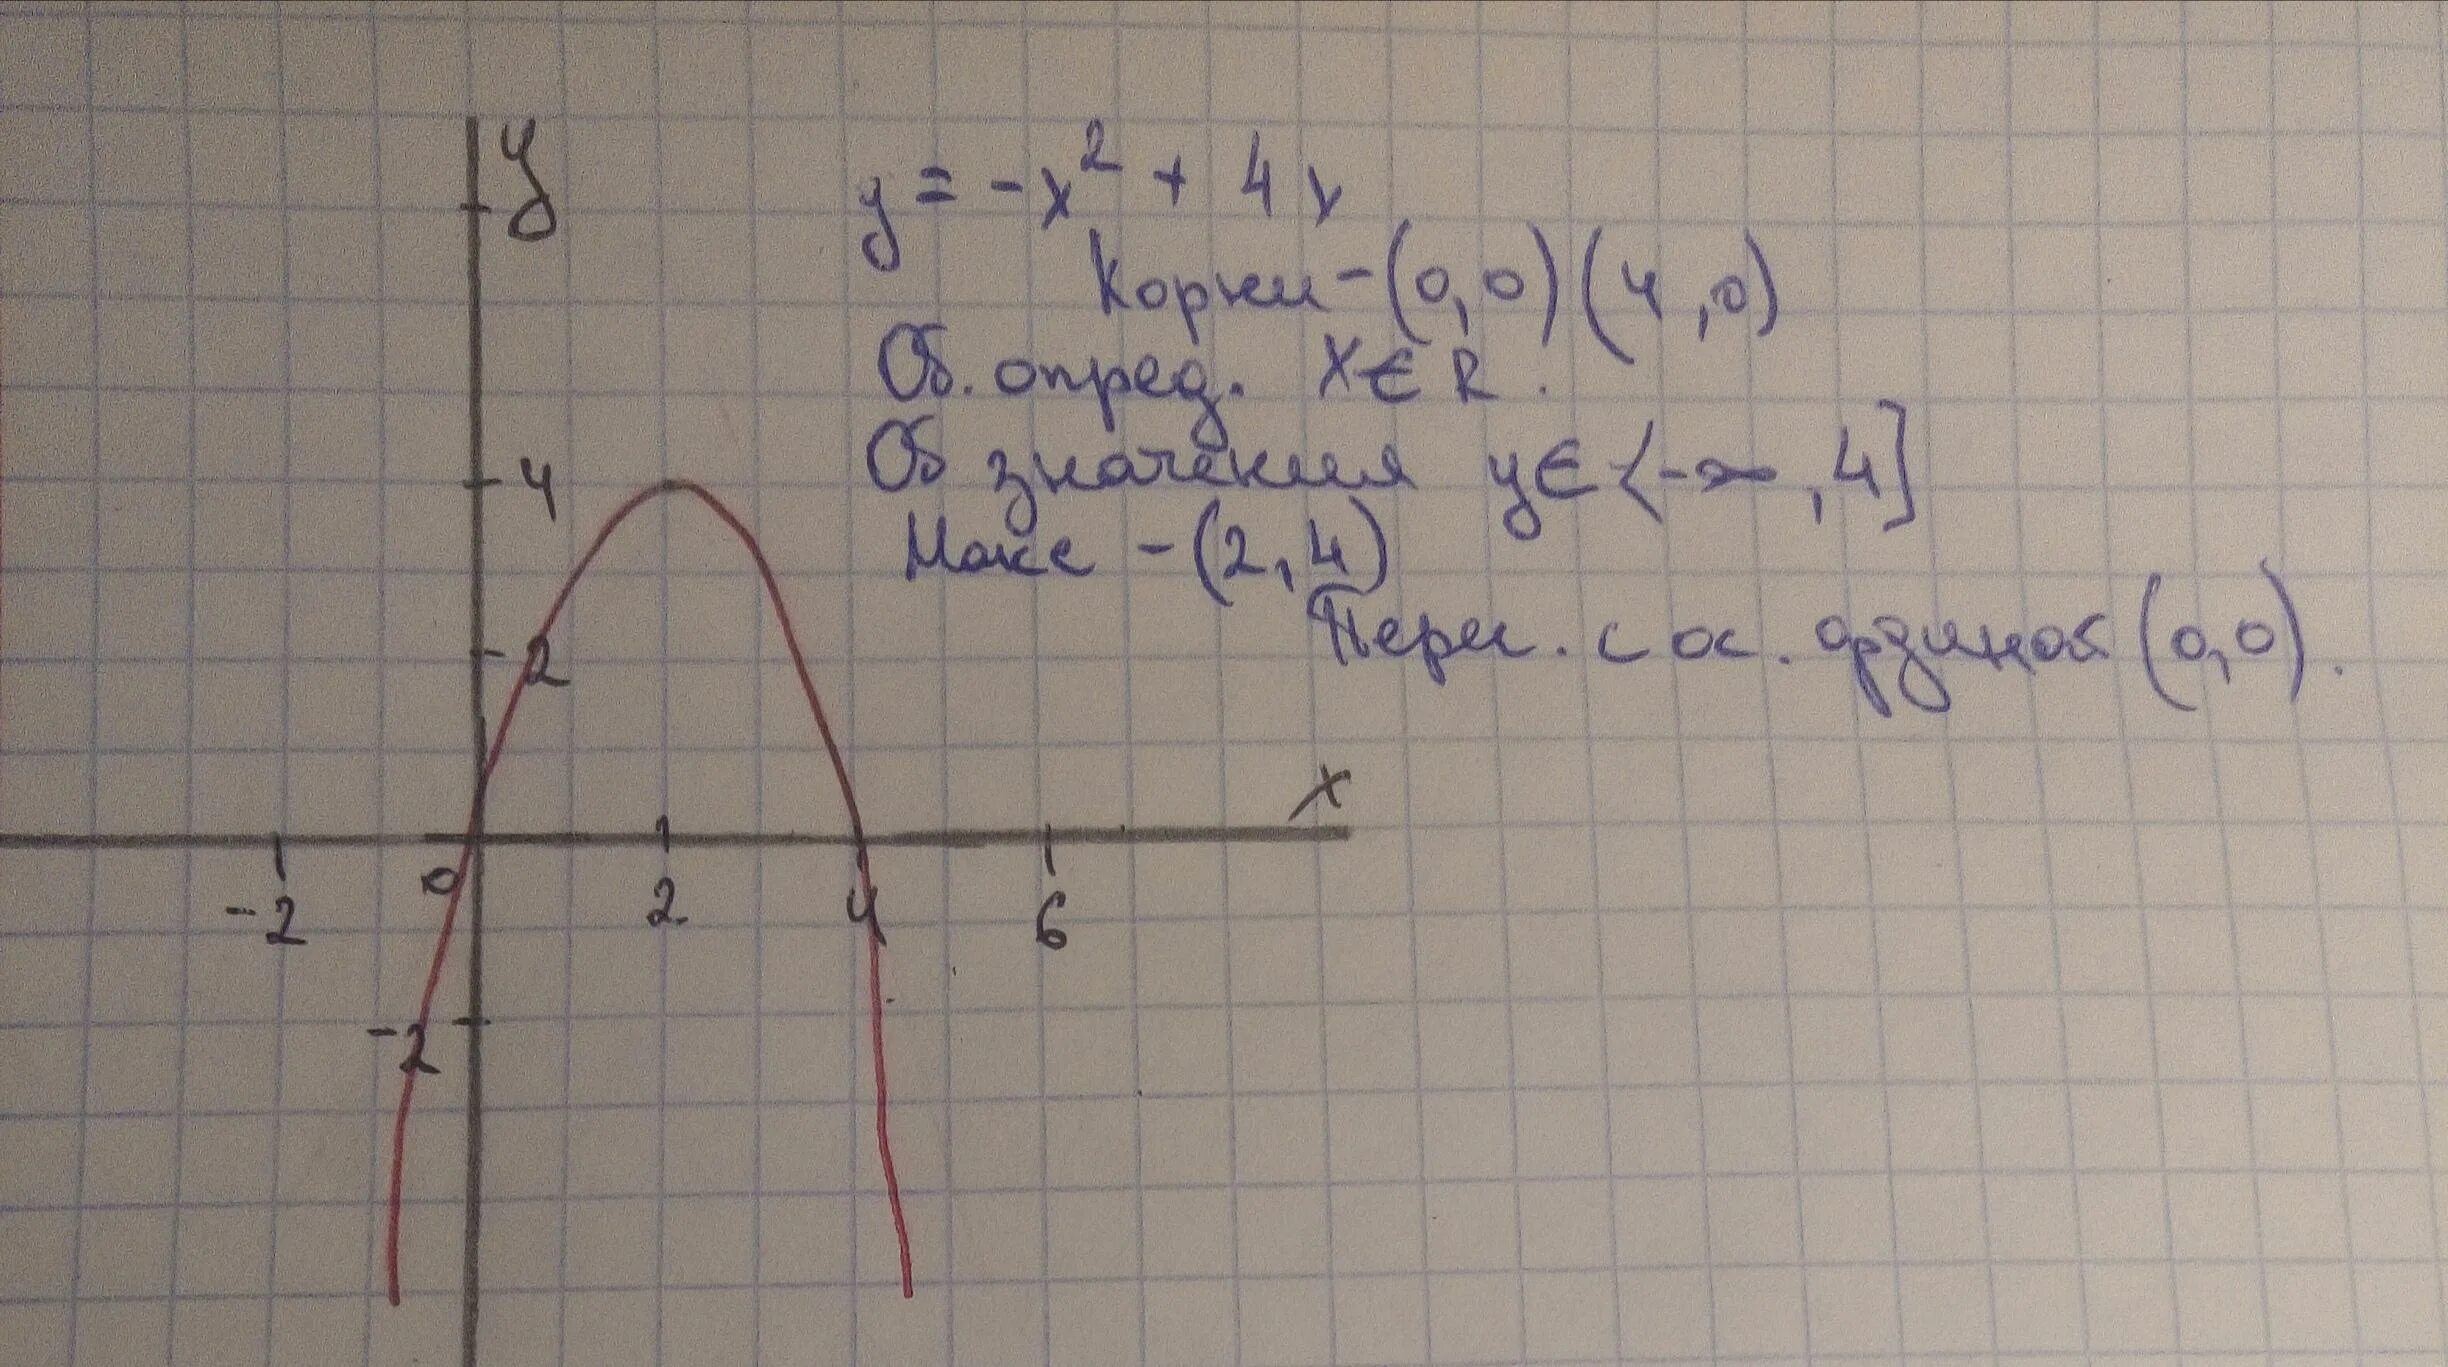 y
y = -x² + 4x
Корни - (0,0) (4,0)
Об. опред. x∈R.
4
Об значения y∈(-∞,4]
Макс - (2,4)
2
Перес. с ос. ординат (0,0).
x
0
-2 2 4 6
-2